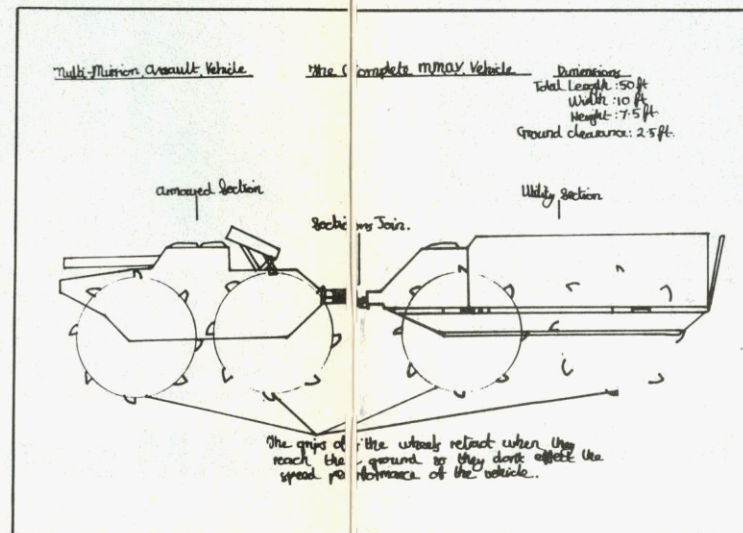 Multi-Mission Assault Vehicle
The Complete MMAV Vehicle
Dimensions
Total Length: 50 ft
Width: 10 ft
Height: 7.5 ft
Ground clearance: 2.5 ft.
Armoured Section
Sections Join.
Utility Section
The grips of the wheels retract when they
reach the ground so they dont effect the
speed performance of the vehicle.